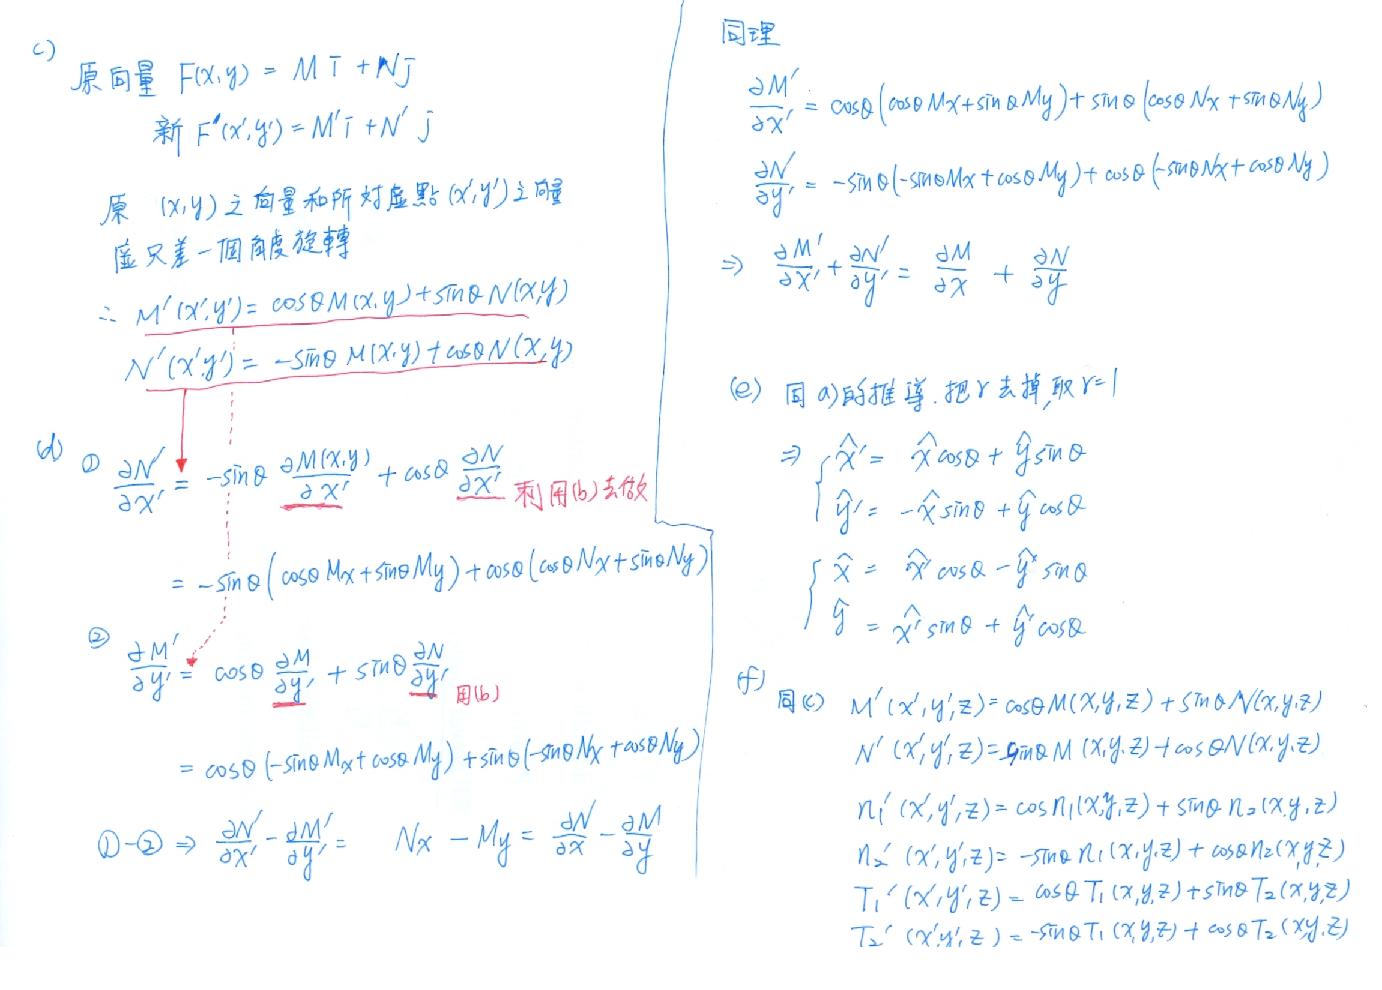 c)
原向量 F(x,y) = M i + N j
新 F'(x',y') = M' i + N' j
原 (x,y) 之向量和所對應點 (x',y') 之向量
只差一個角度旋轉
∴ M'(x',y') = cosθ M(x,y) + sinθ N(x,y)
N'(x',y') = -sinθ M(x,y) + cosθ N(x,y)
(d) ① ∂N'/∂x' = -sinθ ∂M(x,y)/∂x' + cosθ ∂N/∂x' 利用(b)去做
= -sinθ (cosθ Mx + sinθ My) + cosθ (cosθ Nx + sinθ Ny)
② ∂M'/∂y' = cosθ ∂M/∂y' + sinθ ∂N/∂y' 用(b)
= cosθ (-sinθ Mx + cosθ My) + sinθ (-sinθ Nx + cosθ Ny)
①-② ⇒ ∂N'/∂x' - ∂M'/∂y' = Nx - My = ∂N/∂x - ∂M/∂y
同理
∂M'/∂x' = cosθ (cosθ Mx + sinθ My) + sinθ (cosθ Nx + sinθ Ny)
∂N'/∂y' = -sinθ (-sinθ Mx + cosθ My) + cosθ (-sinθ Nx + cosθ Ny)
⇒ ∂M'/∂x' + ∂N'/∂y' = ∂M/∂x + ∂N/∂y
(e) 同 a) 的推導. 把 r 去掉, 取 r=1
⇒ { x̂' = x̂ cosθ + ŷ sinθ
ŷ' = -x̂ sinθ + ŷ cosθ
{ x̂ = x̂' cosθ - ŷ' sinθ
ŷ = x̂' sinθ + ŷ' cosθ
(f) 同(c) M'(x',y',z) = cosθ M(x,y,z) + sinθ N(x,y,z)
N'(x',y',z) = -sinθ M(x,y,z) + cosθ N(x,y,z)
n₁'(x',y',z) = cos n₁(x,y,z) + sinθ n₂(x,y,z)
n₂'(x',y',z) = -sinθ n₁(x,y,z) + cosθ n₂(x,y,z)
T₁'(x',y',z) = cosθ T₁(x,y,z) + sinθ T₂(x,y,z)
T₂'(x',y',z) = -sinθ T₁(x,y,z) + cosθ T₂(x,y,z)